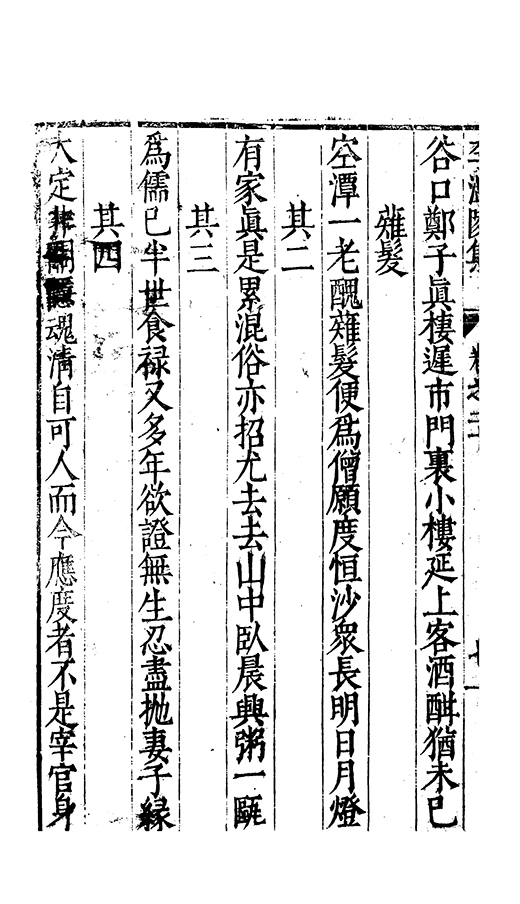 谷口鄭子眞棲遲市門裏小樓延上客酒酣猶未已
薙髮
空潭一老醜薙髮便爲僧願度恒沙衆長明日月燈
其二
有家眞是累混俗亦招尤去去山中臥晨興粥一甌
其三
爲儒已半世食祿又多年欲證無生忍盡拋妻子緣
其四
大定非關隱魂清自可人而今應度者不是宰官身